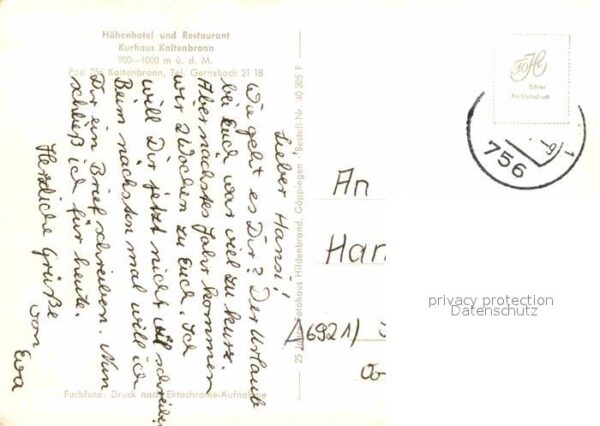 Höhenhotel und Restaurant
Kurhaus Kaltenbronn
900—1000 m ü. d. M.
Post 756 Kaltenbronn, Tel. Gernsbach 21 18
Lieber Hansi!
Wie geht es Dir? Der Urlaub
bei Euch war viel zu kurz.
Aber nächstes Jahr kommen
wir 2 Wochen zu Euch. Ich
will Dir jetzt nicht viel schreiben
Beim nächsten mal will ich
Dir ein Brief schreiben. Nun
schließ ich für heute.
Herzliche Grüße
von Eva
Farbfoto: Druck nach Ektachrome-Aufnahme
Fotohaus Hildenbrand, Göppingen Bestell-Nr. 40 305 F
FOH
Echter
Farbfotodruck
756
1
An
Han
A 6921)
privacy protection
Datenschutz